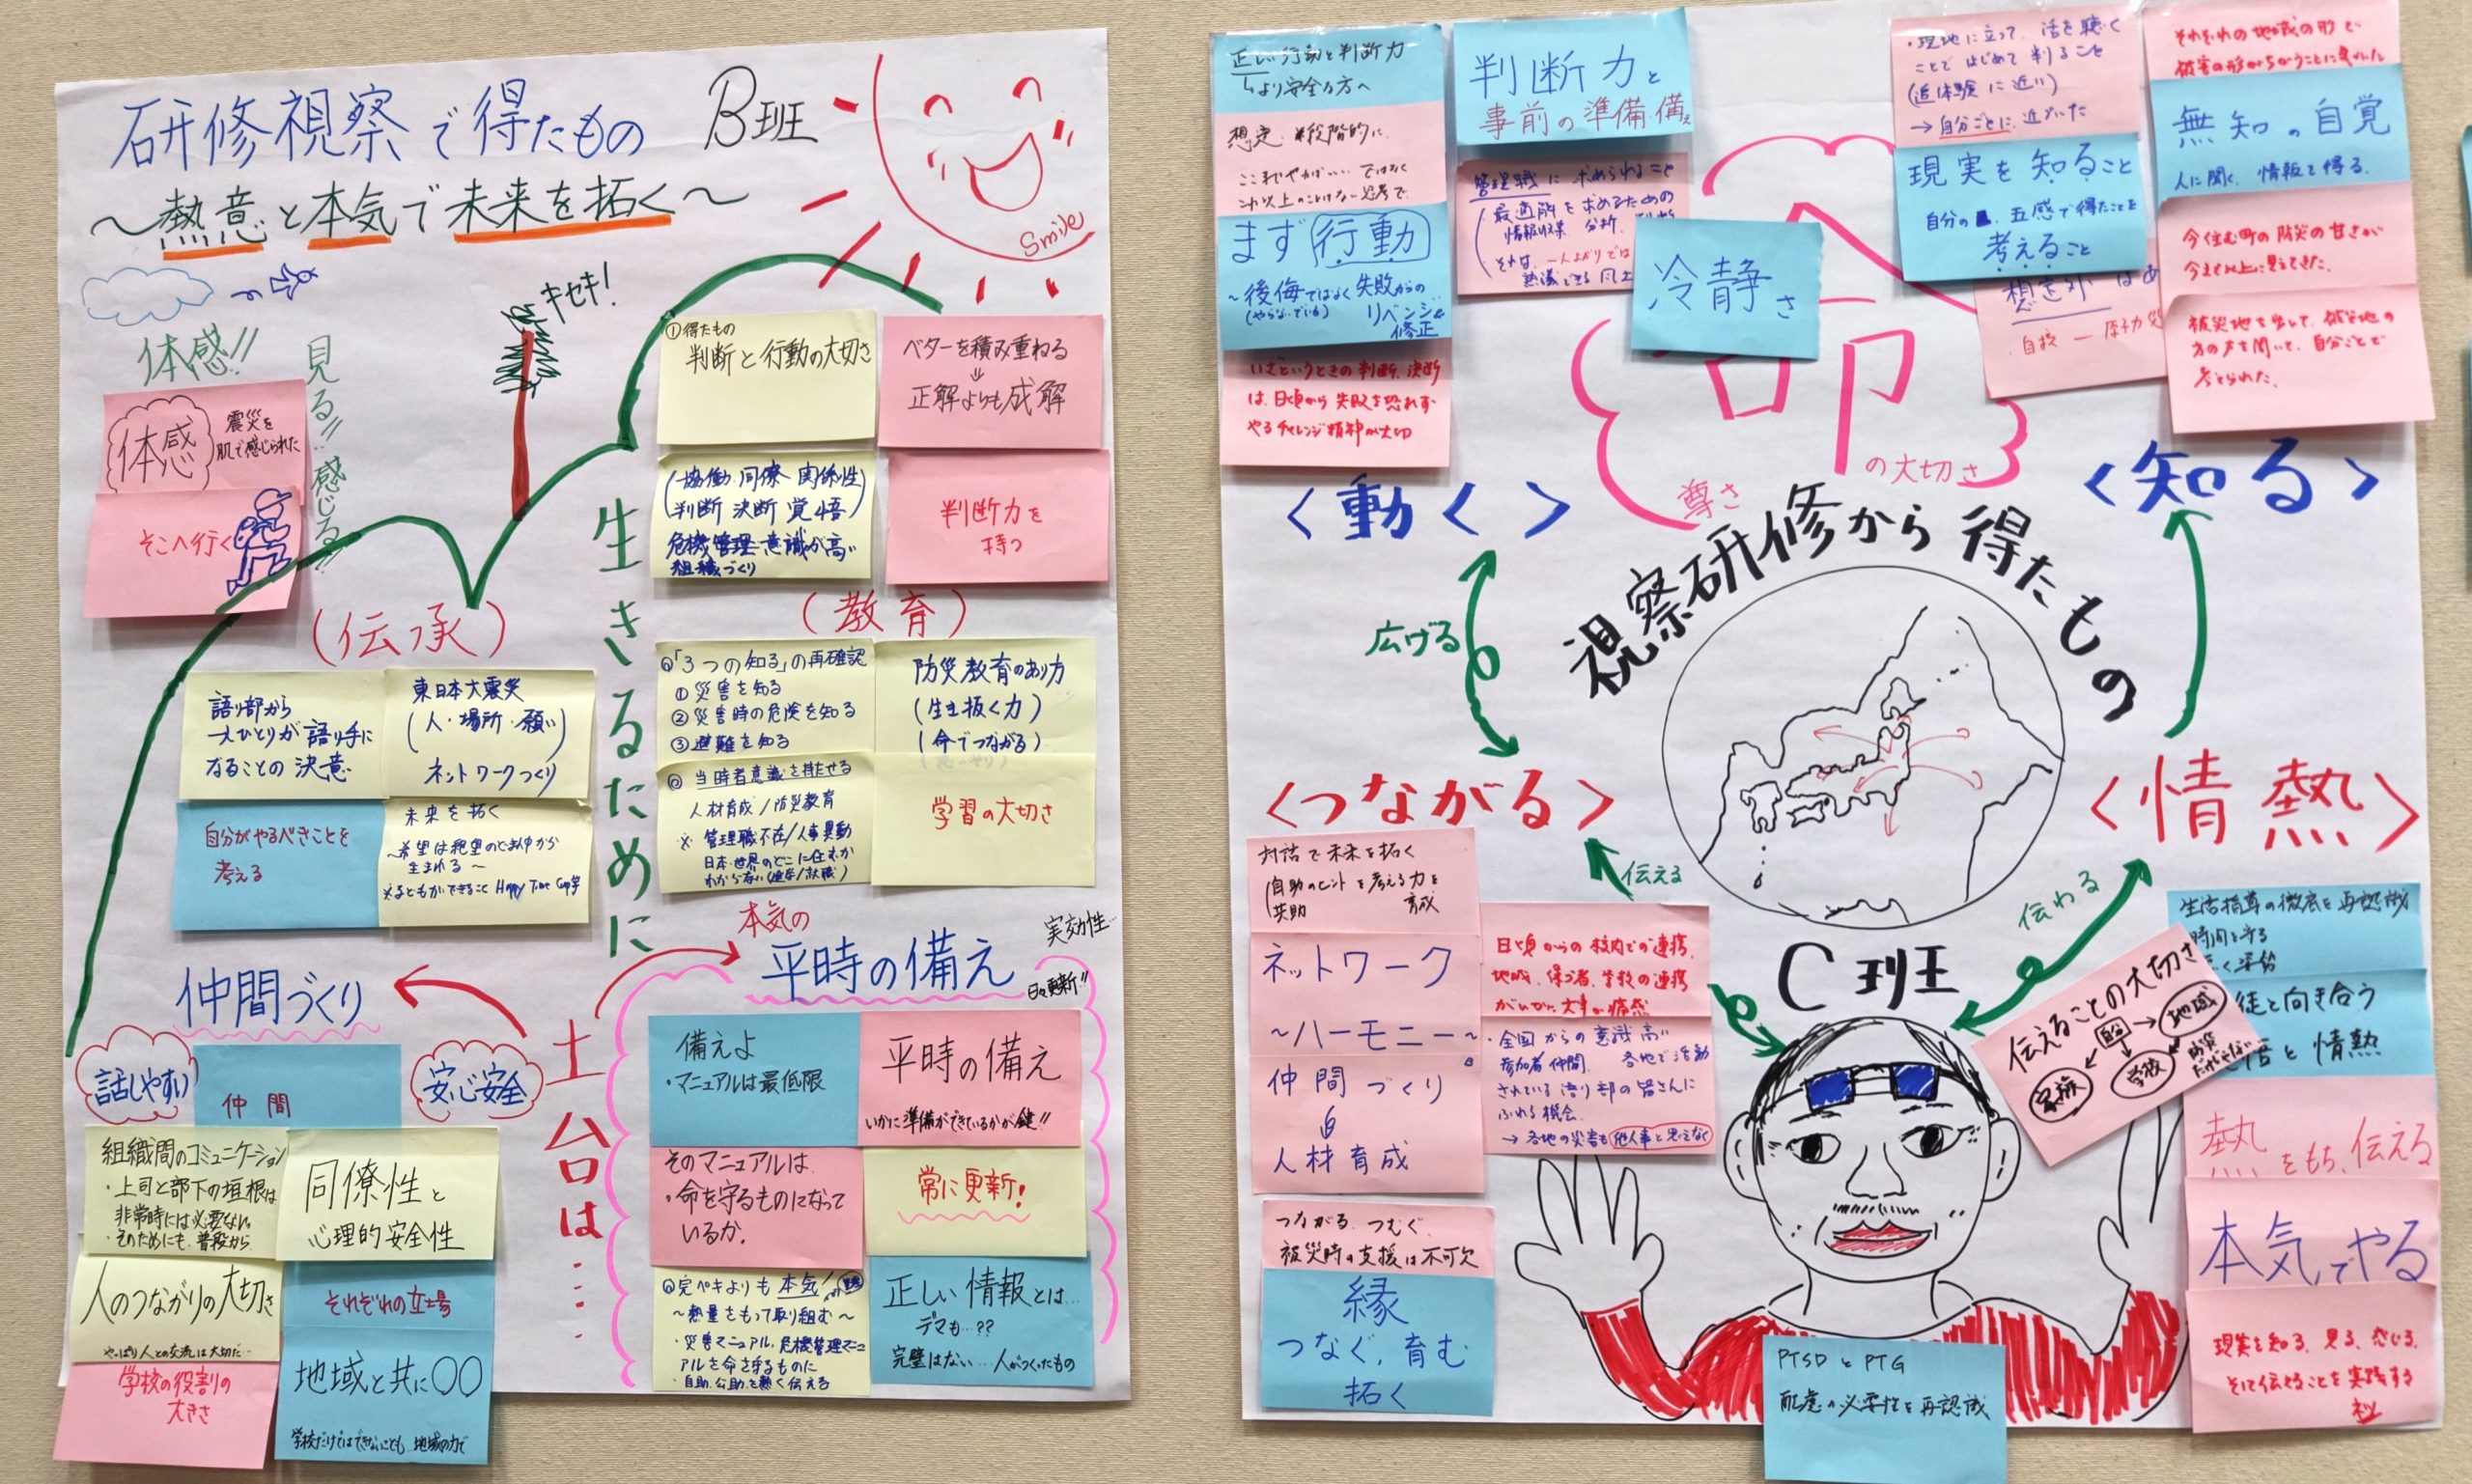 研修視察で得たもの B班
〜熱意と本気で未来を拓く〜
Smile
キセキ!
体感!!
見る!!感じる!!
体感
震災を
肌で感じられた
そこへ行く
(伝承)
語り部から
一人ひとりが語り手に
なることの決意
東日本大震災
(人・場所・願い)
ネットワークづくり
自分がやるべきことを
考える
未来を拓く
〜希望は絶望のど真中から
生まれる〜
生きるために
①得たもの
判断と行動の大切さ
ベターを積み重ねる
↓
正解よりも成解
(協働 同僚 関係性)
(判断 決断 覚悟)
危機管理意識が高い
組織づくり
判断力を
持つ
(教育)
◎「3つの知る」の再確認
①災害を知る
②災害時の危険を知る
③避難を知る
防災教育のあり方
(生き抜く力)
(命でつながる)
◎当時者意識を持たせる
人材育成/防災教育
※管理職不在/人事異動
日本・世界のどこに住むか
わからない
学習の大切さ
仲間づくり
話しやすい
仲間
安心安全
組織間のコミュニケーション
・上司と部下の垣根は
非常時には必要ない。
・そのためにも、普段から
同僚性と
心理的安全性
人のつながりの大切さ
やっぱり人との交流は大切だ…
それぞれの立場
学校の役割の
大きさ
地域と共に〇〇
学校だけではできないことも 地域の力で
土台は…
本気の
平時の備え
実効性…
日々更新!!
備えよ
・マニュアルは最低限
平時の備え
いかに準備ができているかが鍵!!
そのマニュアルは
・命を守るものになって
いるか。
常に更新!
◎完ペキよりも本気!
〜熱量をもって取り組む〜
・災害マニュアル、危機管理マニュ
アルを命を守るものに
・自助、公助を熱く伝える
正しい情報とは…
デマも…??
完璧はない…人がつくったもの
正しい行動と判断力
↳より安全な方へ
想定 *段階的に
ここまでやれば… ではなく
これ以上のことはない思考で
まず行動
〜後悔ではなく失敗からの
(やらないでいる) リベンジ&
修正
いざというときの判断、決断
は、日頃から失敗を恐れず
やるチャレンジ精神が大切
判断力と
事前の準備・備え
管理職に求められること
最適解を求めるための
情報収集 分析 判断
それは、一人よがりでは
冷静さ
命
の大切さ
尊さ
・現地に立って、話を聴く
ことではじめて判ること
(追体験に近い)
→自分ごとに近づいた
現実を知ること
自分の 五感で得たことを
考えること
想定外はあ
それぞれの地域の形で
被害の形がちがうことに気づいた
無知の自覚
人に聞く、情報を得る。
今住む町の防災の甘さが
今まで以上に見えてきた。
被災地を歩いて、被災地の
方の声を聞いて、自分ごとで
考えられた。
<動く>
<知る>
視察研修から得たもの
広げる
<つながる>
<情熱>
伝える
伝わる
C班
対話で未来を拓く
(自助のヒントを考える力を
共助 育成
ネットワーク
〜ハーモニー〜
仲間づくり
&
人材育成
日頃からの校内での連携
地域、保ゴ者、学校の連携
がいかに大事か痛感
・全国からの意識高い
参加者仲間 各地で活動
されている語り部の皆さんに
ふれる機会
→各地の災害も他人事と思えなく
つながる、つむぐ
被災時の支援は不可欠
縁
つなぐ、育む
拓く
生活指導の徹底を再認識
時間を守る
伝えることの大切さ
自分
家族
学校
地域
徒と向き合う
と情熱
熱をもち、伝える
本気でやる
現実を知る、見る、感じる、
そして伝えることを実践する
PTSDとPTG
配慮の必要性を再認識